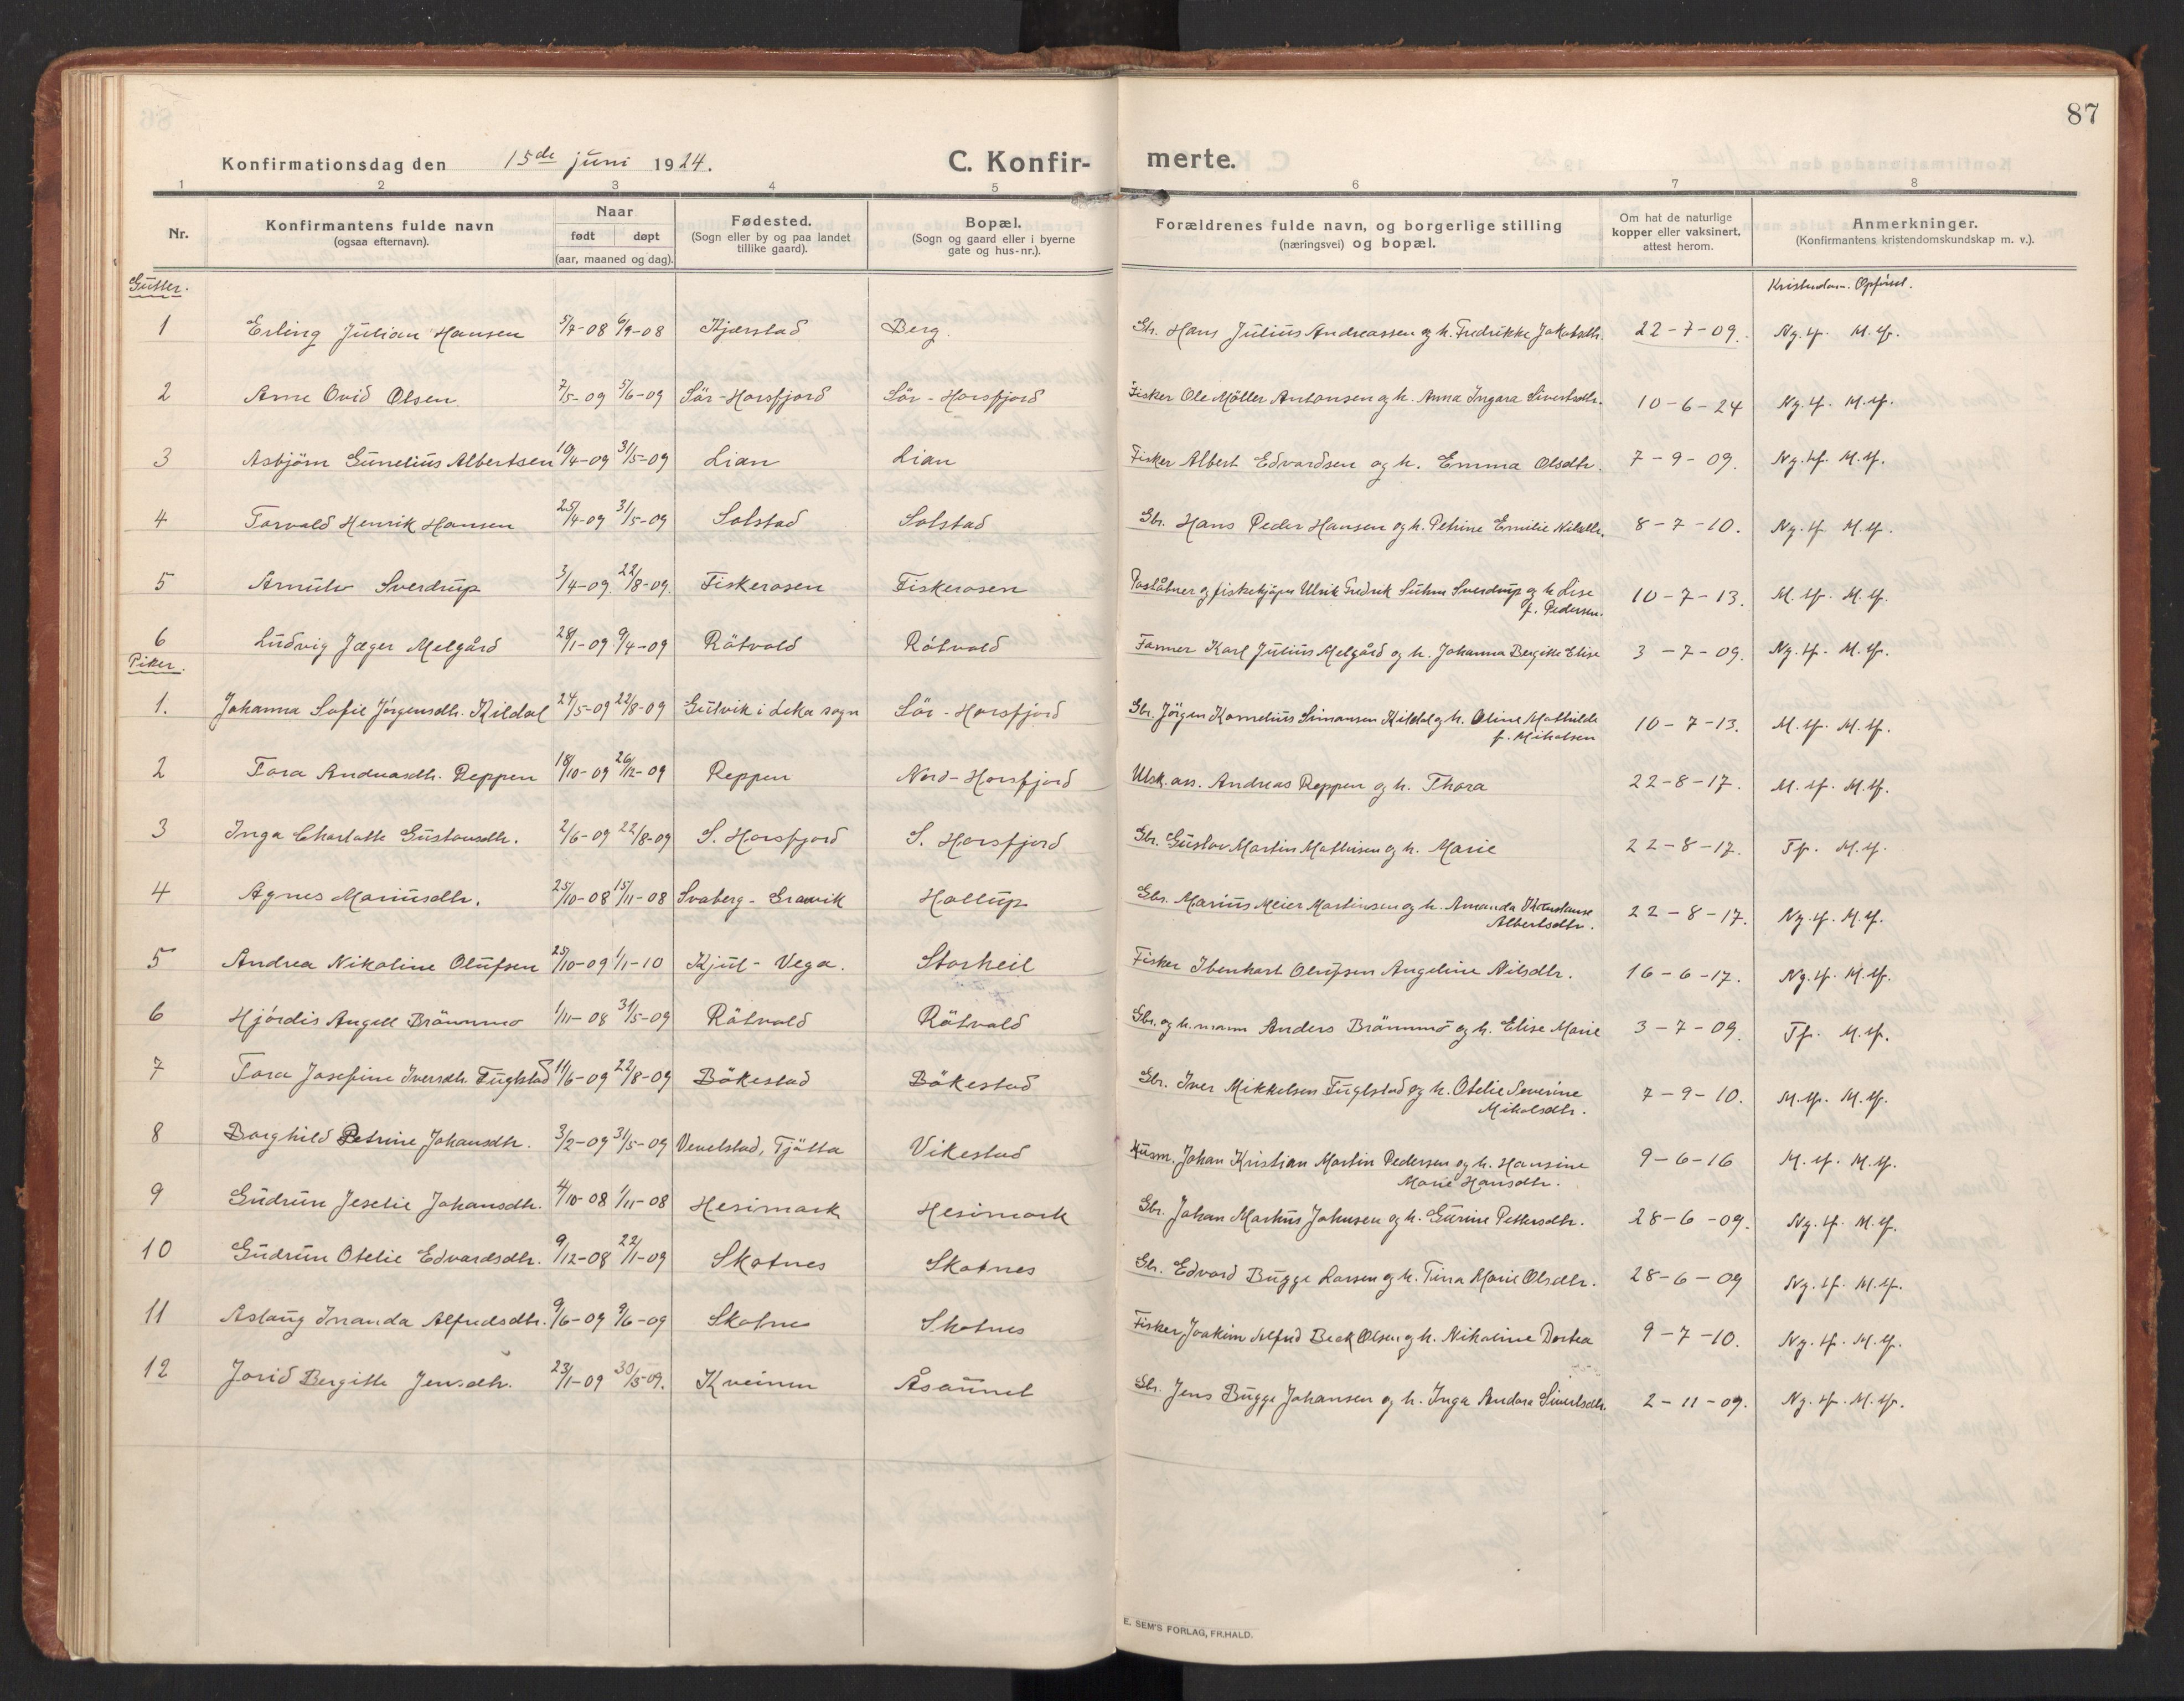 87
Konfirmationsdag den 15de juni 1924.
C. Konfirmerte.
1 2 3 4 5 6 7 8
Nr.
Konfirmantens fulde navn
(ogsaa efternavn).
Naar
født døpt
(aar, maaned og dag).
Fødested.
(Sogn eller by og paa landet
tillike gaard).
Bopæl.
(Sogn og gaard eller i byerne
gate og hus-nr.).
Forældrenes fulde navn, og borgerlige stilling
(næringsvei) og bopæl.
Om hat de naturlige
kopper eller vaksinert,
attest herom.
Anmerkninger.
(Konfirmantens kristendomskundskap m. v.).
Gutter.
Kristendom. Opførsel.
1 Erling Julian Hansen 5/7-08 6/9-08 Kjærstad Berg. Gbr. Hans Julius Andreassen og h. Fredrikke Jakobsdtr. 22-7-09. Ng. tf. M. tf.
2 Arne Ovid Olsen 7/5-09 5/6-09 Sör-Horsfjord Sör-Horsfjord Fisker Ole Möller Antonsen og h. Anna Ingara Sivertsdtr. 10-6-24 Ng. tf. M. tf.
3 Asbjörn Gunelius Albertsen 10/4-09 31/5-09 Lian Lian Fisker Albert Edvardsen og h. Emma Olsdtr. 7-9-09. Ng. tf. M. tf.
4 Torvald Henrik Hansen 25/4-09 31/5-09 Solstad Solstad Gbr. Hans Peder Hansen og h. Petrine Emilie Nilsdtr. 8-7-10. Ng. tf. M. tf.
5 Arnulv Sverdrup 3/4-09. 22/8-09. Fiskerosen Fiskerosen Poståbner og fiskekjöper Ulrik Fredrik Suhm Sverdrup og h. Lise
f. Pedersen. 10-7-13. M. tf. M. tf.
6 Ludvig Jæger Melgård 28/1-09 9/4-09 Råtvold Råtvold Farmer Karl Julius Melgård og h. Johanna Bergitte Elise 3-7-09. Ng. tf. M. tf.
Piker.
1. Johanna Sofie Jörgensdtr. Kildal 24/5-09 22/8-09 Gutvik i Leka sogn Sör-Horsfjord Gbr. Jörgen Kornelius Simonsen Kildal og h. Oline Mathilde
f. Mikalsen 10-7-13. M. tf. M. tf.
2 Tora Andreasdtr. Reppen 18/10-09 26/12-09 Reppen Nord-Horsfjord Utsk. ass. Andreas Reppen og h. Thora 22-8-17. M. tf. M. tf.
3 Inga Charlotte Gustavsdtr. 2/6-09 22/8-09 S. Horsfjord S. Horsfjord Gbr. Gustav Martin Mathisen og h. Marie 22-8-17. Tf. M. tf.
4 Agnes Mariusdtr. 25/10-08 15/11-08 Svaberg-Gravvik Hollup Gbr. Marius Meier Martinsen og h. Amanda
Albertsdtr. 22-8-17. Ng. tf. M. tf.
5 Andrea Nikoline Olufsen 25/10-09 1/1-10 Kjul-Vega. Storheil Fisker Ibenhart Olufsen Angeline Nilsdtr. 16-6-17. Ng. tf. M. tf.
6 Hjördis Angell Brönnmo 1/11-08 31/5-09 Råtvold Råtvold Gbr. og h.mann Anders Brönnmo og h. Elise Marie 3-7-09. Tf. M. tf.
7 Tora Josefine Iversdtr. Fuglstad 11/6-09 22/8-09 Bökestad Bökestad Gbr. Iver Mikkelsen Fuglstad og h. Otelie Severine
Mikalsdtr. 7-9-10. M. tf. M. tf.
8 Borghild Petrine Johansdtr. 3/2-09 31/5-09 Vevelstad, Tjötta Vikestad Husm. Johan Kristian Martin Pedersen og h. Hansine
Marie Hansdtr. 9-6-16 M. tf. M. tf.
9 Gudrun Jeselie Johansdtr. 4/10-08 1/11-08 Hesimark Hesimark Gbr. Johan Markus Johnsen og h. Gurine Pettersdtr. 28-6-09. Ng. tf. M. tf.
10 Gudrun Otelie Edvardsdtr. 9/12-08 22/1-09 Skotnes Skotnes Gbr. Edvard Bugge Larsen og h. Tina Marie Olsdtr. 28-6-09 Ng. tf. M. tf.
11 Aslaug Iranda Alfredsdtr. 9/6-09 9/6-09 Skotnes Skotnes Fisker Joakim Alfred Beck Olsen og h. Nikoline Dortea 9-7-10. Ng. tf. M. tf.
12 Jorid Bergitte Jensdtr. 23/1-09 30/5-09. Kveinen Åsaunet Gbr. Jens Bugge Johansen og h. Inga Andora Sivertsdtr. 2-11-09. Ng. tf. M. tf.
E. SEM'S FORLAG, FR.HALD.